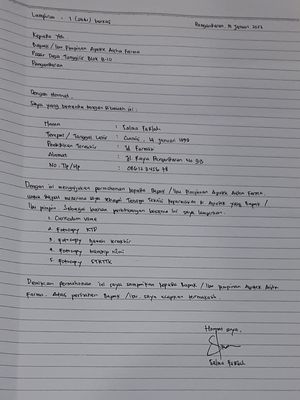 Lampiran : 1 (satu) berkas
Pangandaran, 12 Januari 2022
Kepada Yth
Bapak / Ibu Pimpinan Apotek Aisha Farma
Pasar Desa Blok B.10
Pangandaran
Dengan Hormat,
Saya yang bertanda tangan dibawah ini :
Nama : Salwa
Tempat / Tanggal Lahir : Ciamis, 14 Januari 1999
Pendidikan Terakhir : D3 Farmasi
Alamat : Jl. Raya Pangandaran No 313
NO. Tlp / Hp : 08612345678
Dengan ini mengajukan permohonan kepada Bapak / Ibu Pimpinan Apotek Aisha Farma
untuk dapat menerima saya sebagai Tenaga Teknis Kefarmasian di Apotek yang Bapak /
Ibu pimpin. Sebagai bahan pertimbangan bersama ini saya lampirkan :
1. Curiculum Vitae
2. Fotocopy KTP
3. Fotocopy Ijazah terakhir
4. Fotocopy transkip nilai
5. Fotocopy STRTTK
Demikian permohonan ini saya sampaikan kepada Bapak / Ibu Pimpinan Apotek Aisha
Farma. Atas perhatian Bapak / Ibu, saya ucapkan terimakasih.
Hormat saya,
Salwa